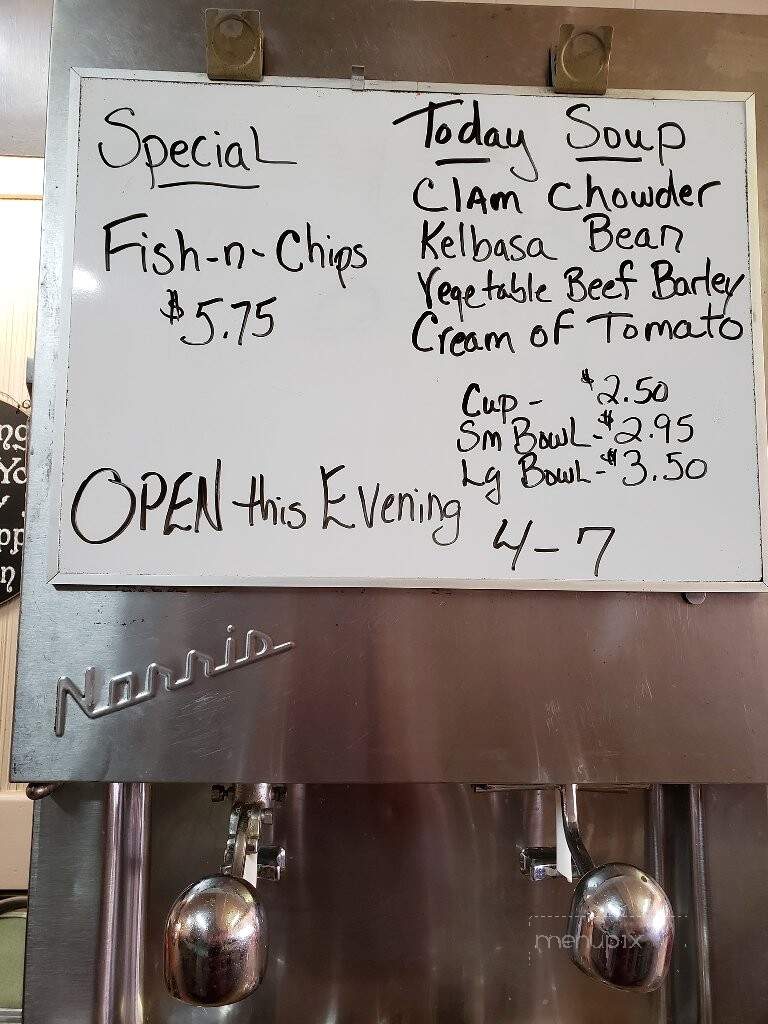 Special
Fish-n-Chips
$5.75
Today Soup
Clam Chowder
Kelbasa Bean
Vegetable Beef Barley
Cream of Tomato
Cup - $2.50
Sm Bowl - $2.95
Lg Bowl - $3.50
OPEN this Evening 4-7
Norris
menupix